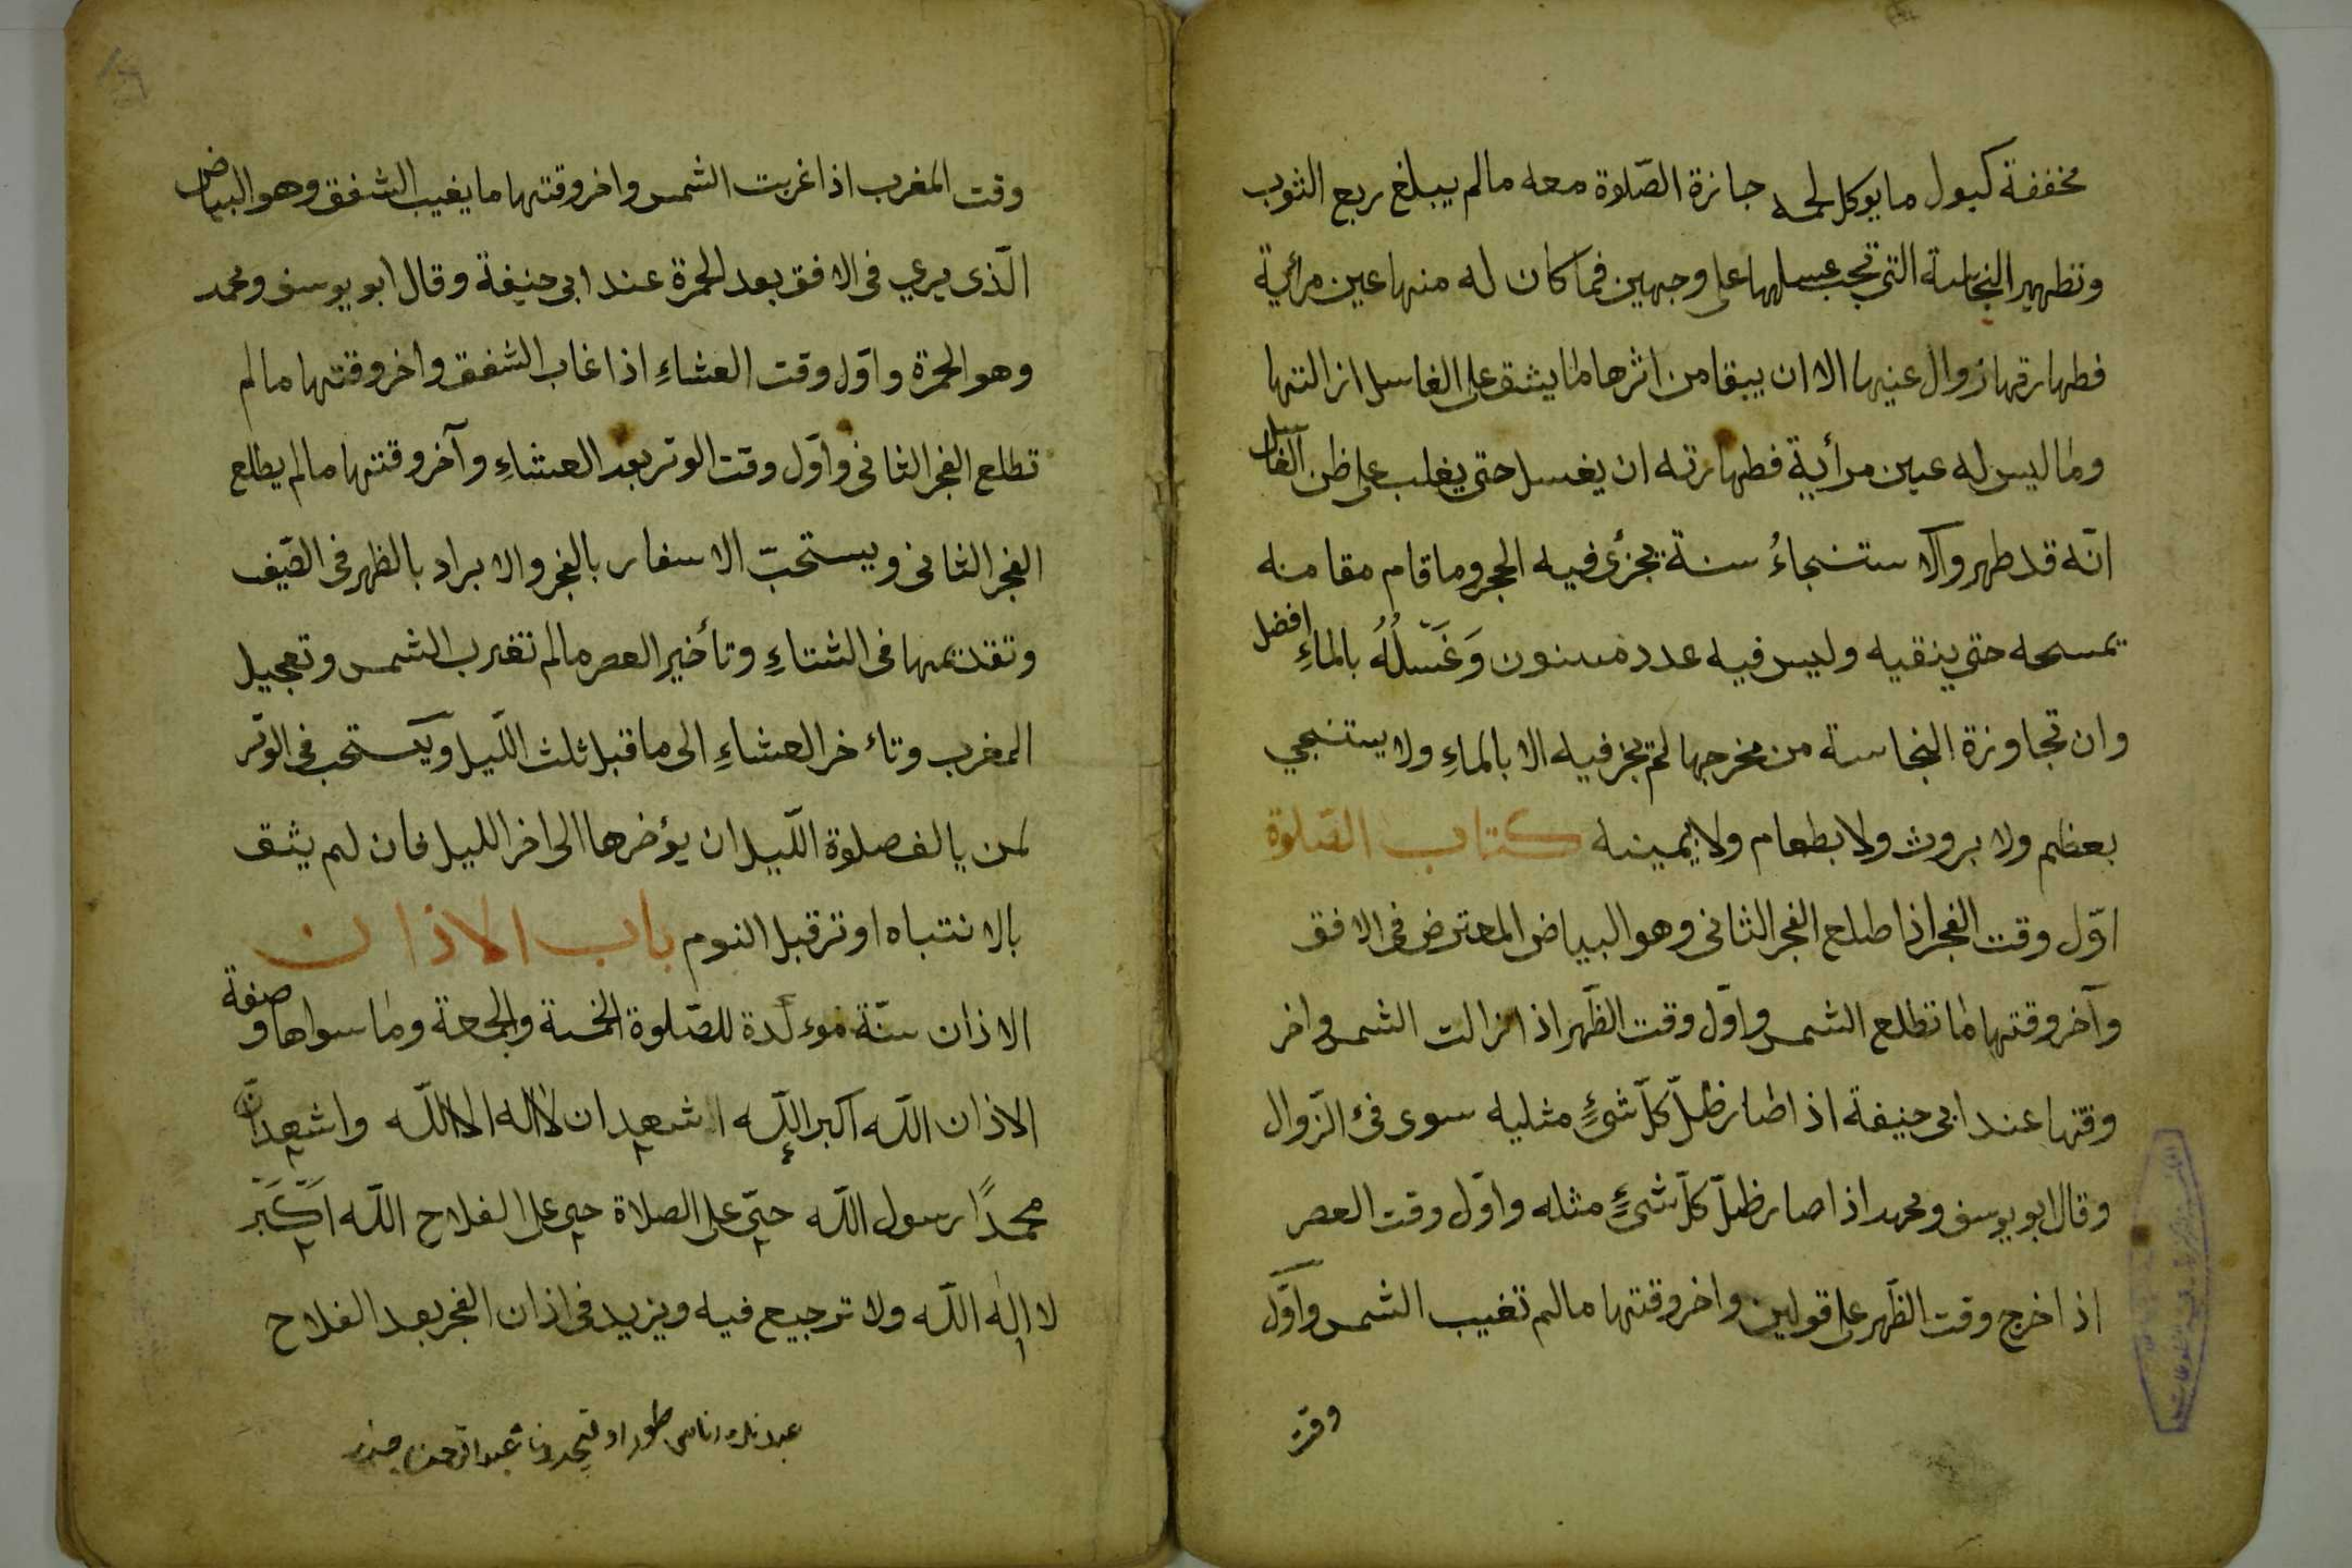 مخففة كبول ما يوكل لحمه جازة الصّلوة معه مالم يبلغ ربع الثوب
وتطهير النجاسة التي تجب غسلها على وجهين فما كان له منها عين مرأية
فطهارتها زوال عينها الا ان يبقا من اثرها ما يشق على الغاسل ازالتها
وما ليس له عين مرأية فطهارته ان يغسل حتى يغلب على ظن الغاسل
انّه قد طهر والاستنجاءُ سنة يجزئ فيه الحجر وما قام مقامه
يمسحه حتى ينقيه وليس فيه عدد مسنون وَغَسْلُهُ بالماءِ افضل
وان تجاوزة النجاسة من مخرجها لم يجز فيه الا بالماءِ ولا يستنجي
بعظم ولا بروث ولا بطعام ولا بيمينه كتاب الصّلوة
اوّل وقت الفجر اذا طلع الفجر الثانى وهو البياض المعترض فى الافق
وآخر وقتها ما تطلع الشمس واوّل وقت الظّهر اذا زالت الشمس واخر
وقتها عند ابى حنيفة اذا صار ظلّ كلّ شئٍ مثليه سوى فئ الزّوال
وقال ابو يوسف ومحمد اذا صار ظلّ كلّ شئٍ مثله واوّل وقت العصر
اذا خرج وقت الظّهر على قولين واخر وقتها مالم تغيب الشمس واوّل
وقت
وقت المغرب اذا غربت الشمس واخر وقتها ما يغيب الشفق وهو البياض
الّذى يرى فى الافق بعد الحمرة عند ابى حنيفة وقال ابو يوسف ومحمد
وهو الحمرة واوّل وقت العشاءِ اذا غاب الشفق واخر وقتها مالم
تطلع الفجر الثانى واوّل وقت الوتر بعد العشاءِ وآخر وقتها مالم يطلع
الفجر الثانى ويستحبّ الاسفار بالفجر والابراد بالظهر فى الصّيف
وتقديمها فى الشتاءِ وتأخير العصر مالم تغرب الشمس وتعجيل
المغرب وتاءخر العشاءِ الى ما قبل ثلث اللّيل ويستحب فى الوتر
لمن يالف صلوة اللّيل ان يؤخرها الى اخر الليل فان لم يثق
بالانتباه اوتر قبل النوم باب الاذان
الاذان سنّة موءكدة للصّلوة الخمسة والجمعة وما سواها وصفة
الاذان اللّه اكبر اللّه اشهد ان لا اله الا اللّه واشهد انّ
محمدًا رسول اللّه حىّ على الصلاة حى على الفلاح اللّه اكبر
لا اله اللّه ولا ترجيع فيه ويزيد فى اذان الفجر بعد الفلاح